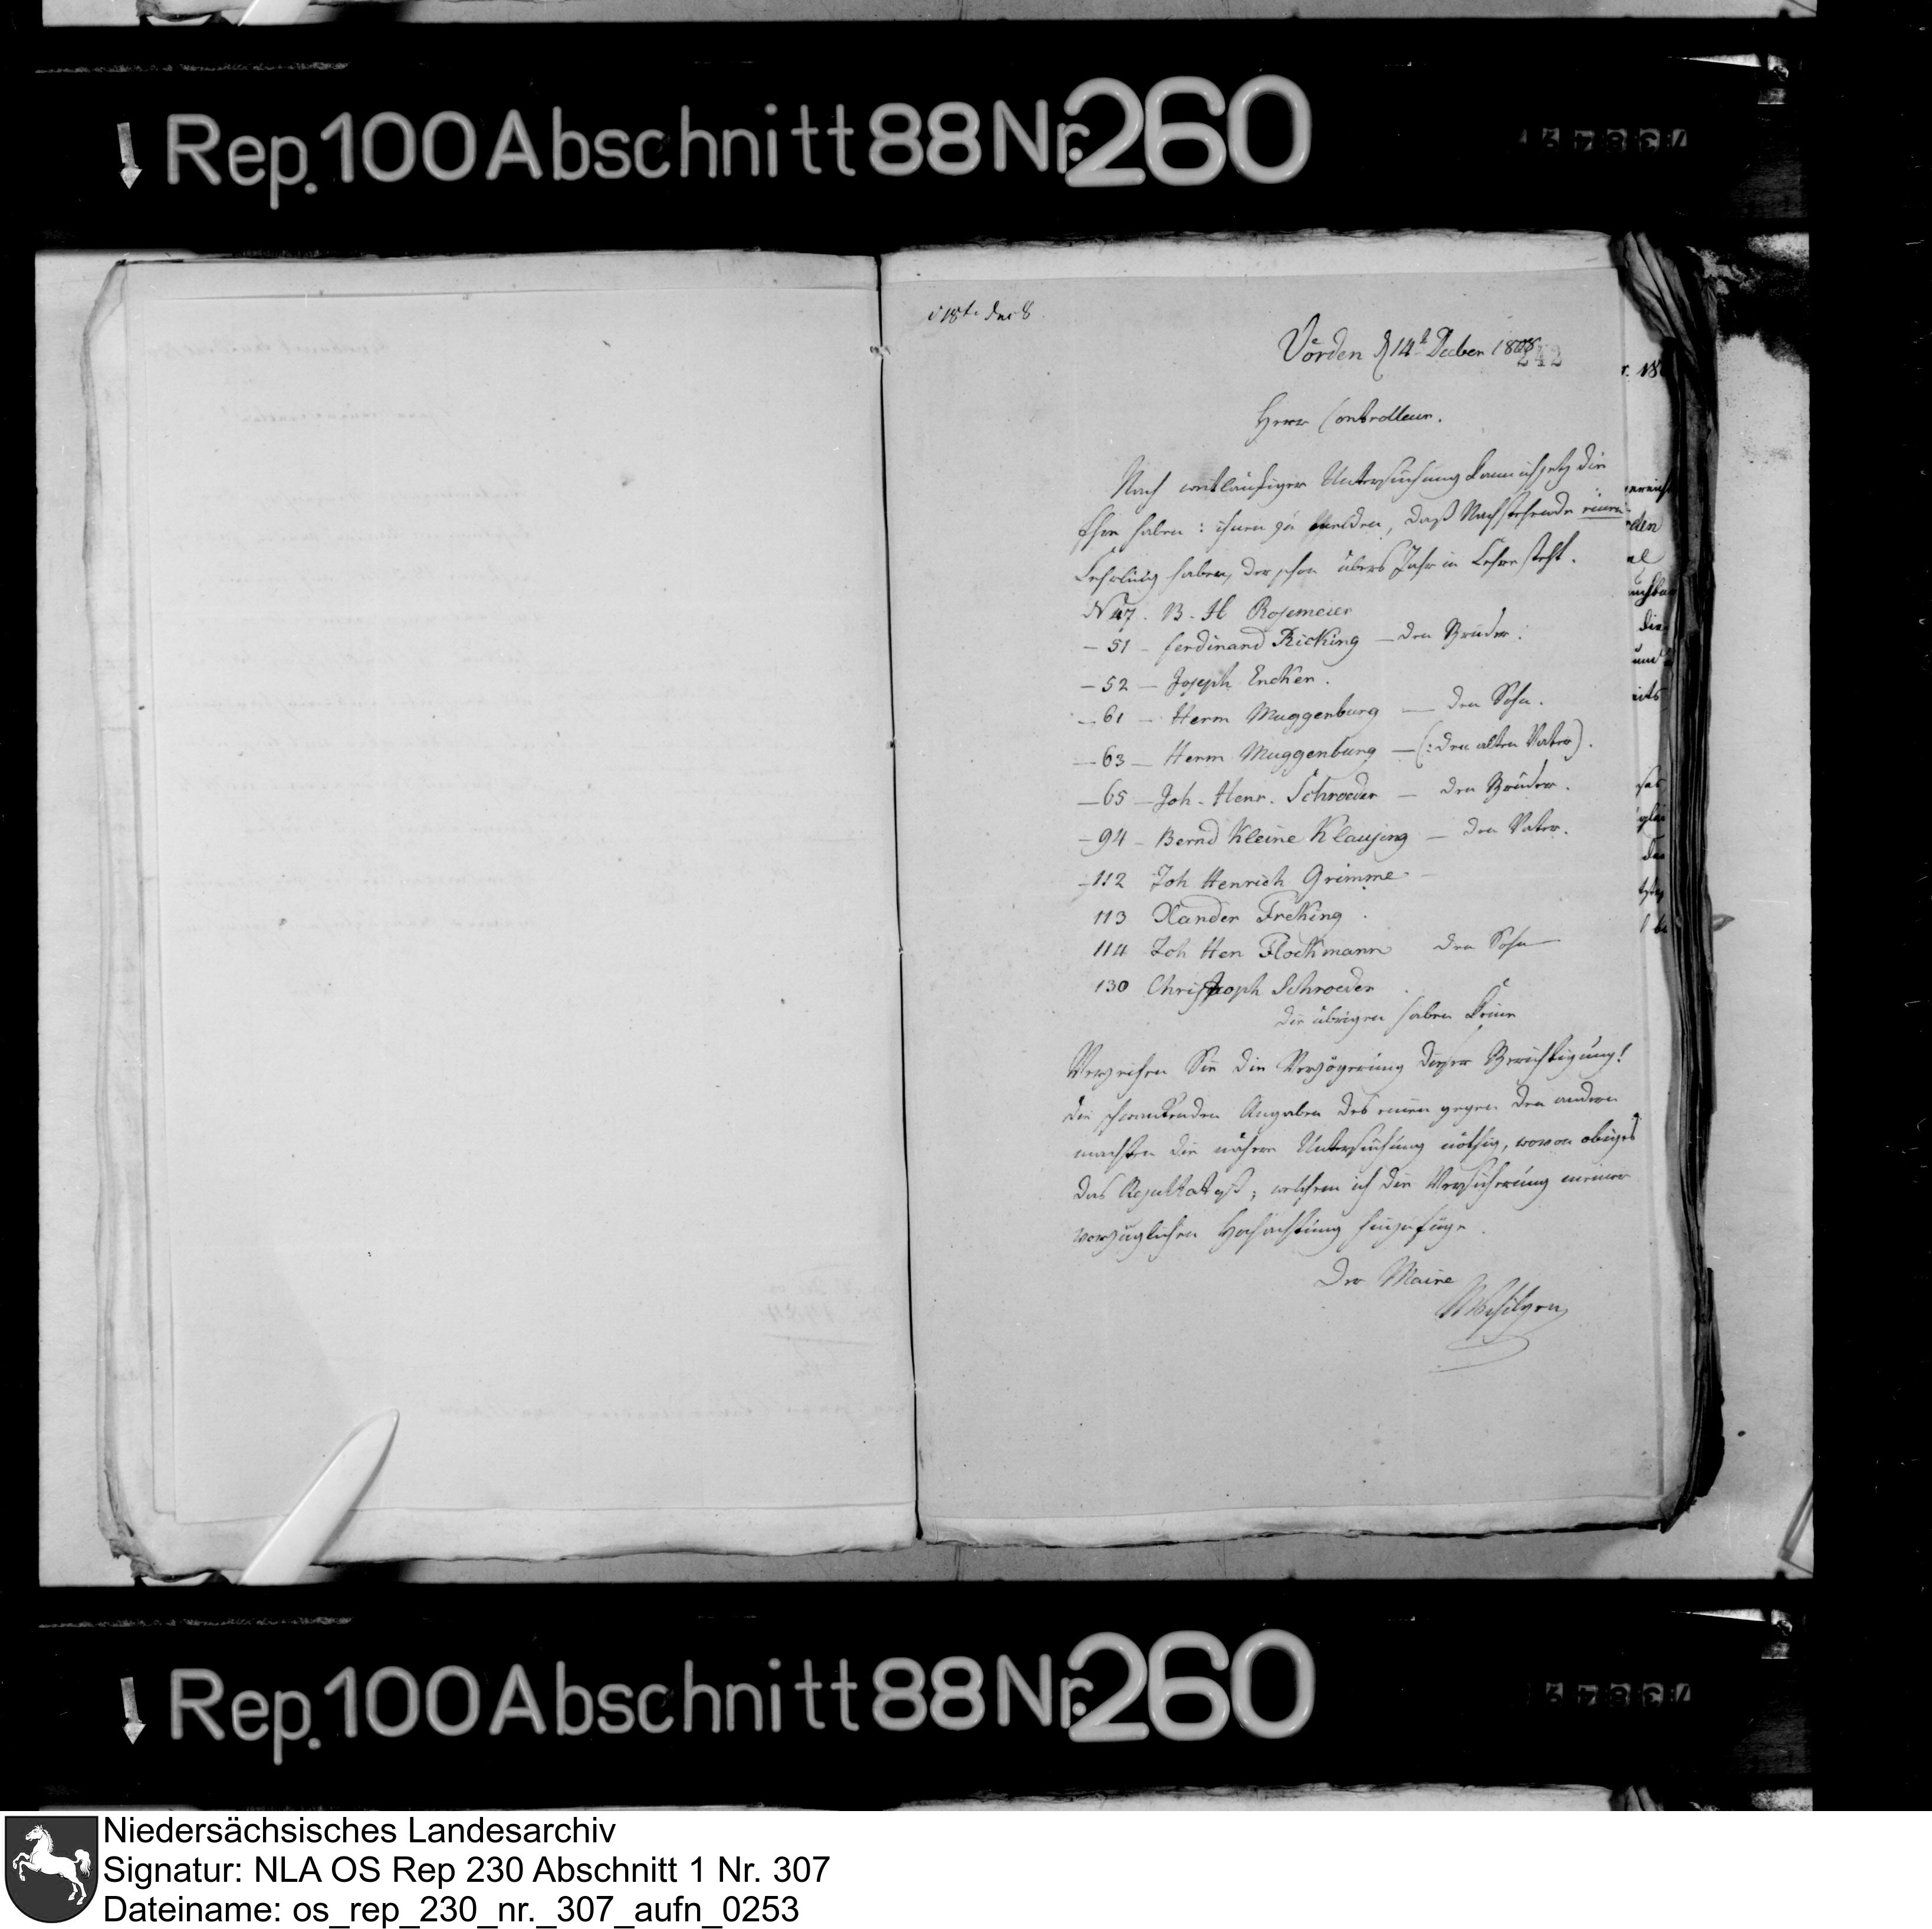 Rep. 100 Abschnitt 88 Nr. 260
Vörden d 14t Decber 1808
242
Herr Controlleur.
Nach weitläufiger Untersuchung kann ich jetz die
Ehre haben: ihnen zu melden, daß Nachstehende einen
Lehrling haben, der schon übers Jahr in Lehre steht.
N 47. B. H. Rosemeier
— 51 — Ferdinand Ricking — den Bruder.
— 52 — Joseph Encken.
— 61 — Herm Muggenburg — den Sohn.
— 63 — Herm Muggenburg — (: den alten Vater).
— 65 — Joh. Henr. Schroeder — den Bruder.
— 94 — Bernd Kleine Klausing — den Vater.
— 112 Joh Henrich Grimme —
113 Xander Freking.
114 Joh Hen Flockmann den Sohn —
130 Christoph Schroeder.
die übrigen haben keine
Verzeihen Sie die Verzögerung dieser Berichtigung!
die schwankenden Angaben des einen gegen den andern
machten die nähere Untersuchung nöthig, wovon obiges
das Resultat ist; welchem ich die Versicherung meiner
vorzüglichen Hochachtung hinzufüge.
Der Maire
Rep. 100 Abschnitt 88 Nr. 260
Niedersächsisches Landesarchiv
Signatur: NLA OS Rep 230 Abschnitt 1 Nr. 307
Dateiname: os_rep_230_nr._307_aufn_0253